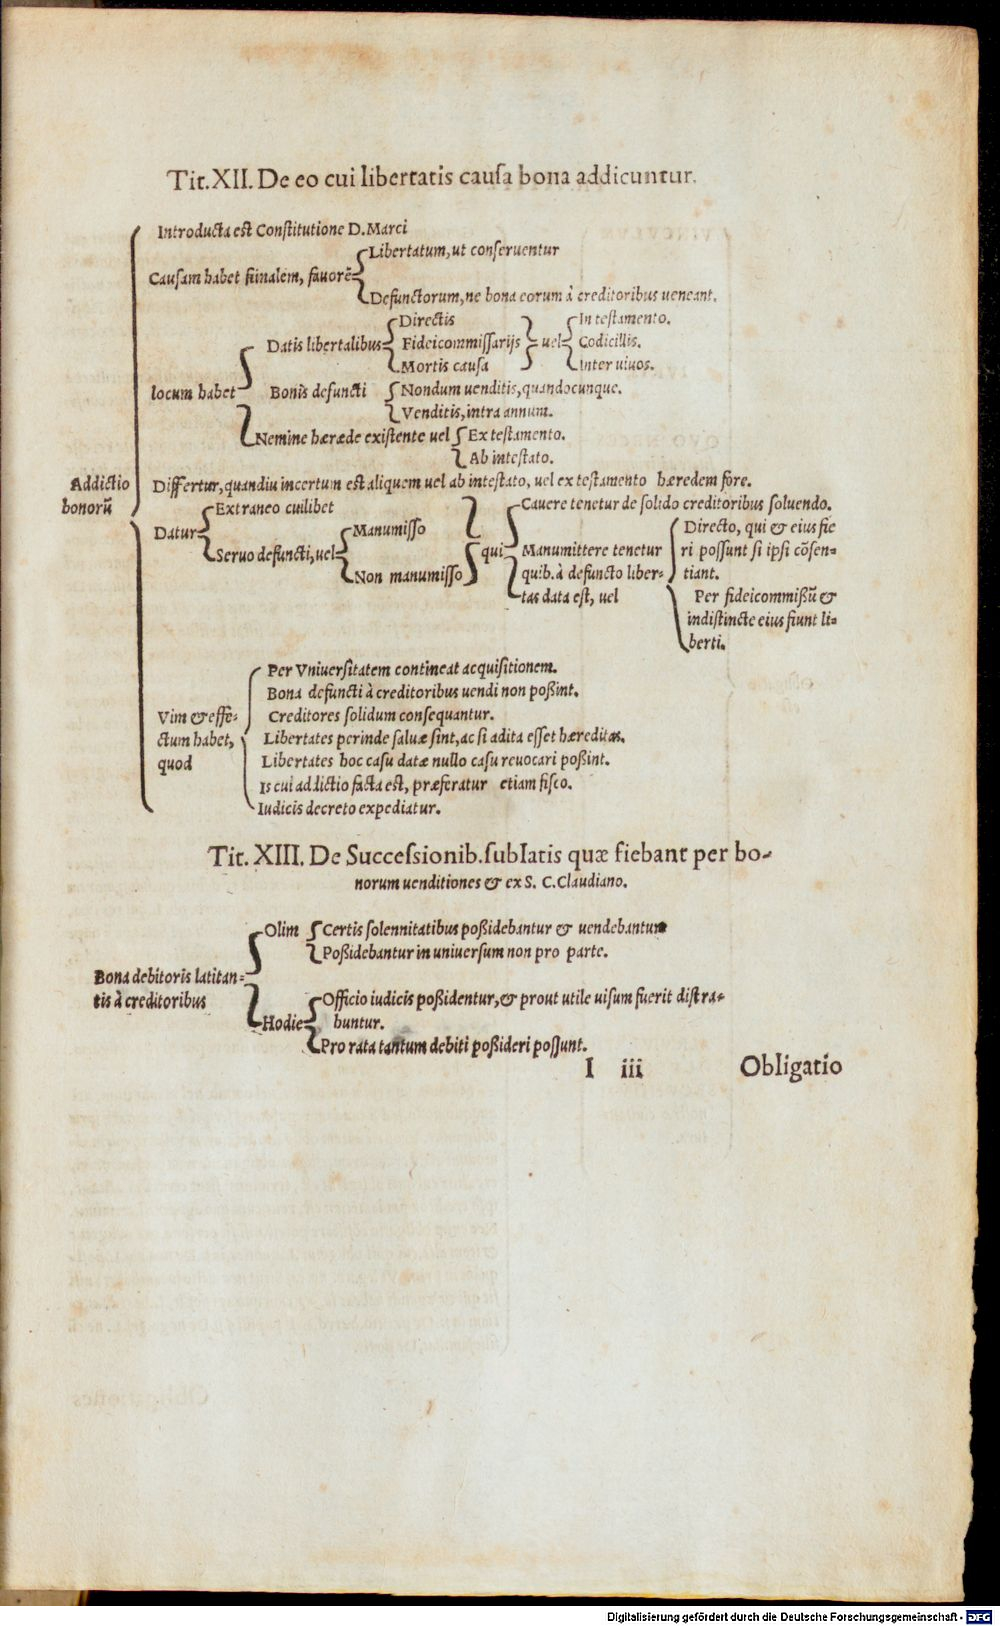 Tit. XII. De eo cui libertatis cauſa bona addicuntur.
Introducta est Conſtitutione D. Marci
Cauſam habet finalem, fauorē
Libertatum, ut conſeruentur
Defunctorum, ne bona eorum à creditoribus ueneant.
locum habet
Datis libertalibus
Directis
Fideicommiſſarijs
Mortis cauſa
uel
In teſtamento.
Codicillis.
Inter uiuos.
Bonis defuncti
Nondum uenditis, quandocunque.
Venditis, intra annum.
Nemine hærǣde exiſtente uel
Ex teſtamento.
Ab inteſtato.
Addictio
bonorū
Differtur, quandiu incertum est aliquem uel ab inteſtato, uel ex teſtamento hæredem fore.
Datur
Extraneo cuilibet
Seruo defuncti, uel
Manumiſſo
Non manumiſſo
qui
Cauere tenetur de ſolido creditoribus ſoluendo.
Manumittere tenetur
quib. à defuncto liber-
tas data eſt, uel
Directo, qui & eius fie
ri poſſunt ſi ipſi cōſen-
tiant.
Per fideicommiſſū &
indiſtincte eius fiunt li-
berti.
Vim & effe-
ctum habet,
quod
Per Vniuerſitatem contineat acquiſitionem.
Bona defuncti à creditoribus uendi non poßint.
Creditores ſolidum conſequantur.
Libertates perinde ſaluæ ſint, ac ſi adita eſſet hæreditas.
Libertates hoc caſu datæ nullo caſu reuocari poßint.
Is cui addictio facta eſt, præferatur etiam fiſco.
Iudicis decreto expediatur.
Tit. XIII. De Succeſsionib. ſublatis quæ fiebant per bo-
norum uenditiones & ex S. C. Claudiano.
Bona debitoris latitan-
tis à creditoribus
Olim
Certis ſolennitatibus poßidebantur & uendebantur
Poßidebantur in uniuerſum non pro parte.
Hodie
Officio iudicis poßidentur, & prout utile uiſum fuerit diſtra-
huntur.
Pro rata tantum debiti poßideri poſſunt.
I iii
Obligatio
Digitalisierung gefördert durch die Deutsche Forschungsgemeinschaft - DFG